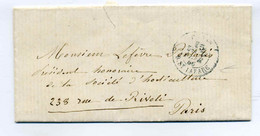 Monsieur Lefèvre Pontalis
Président honoraire
de la Société d'horticulture
238 rue de Rivoli
Paris